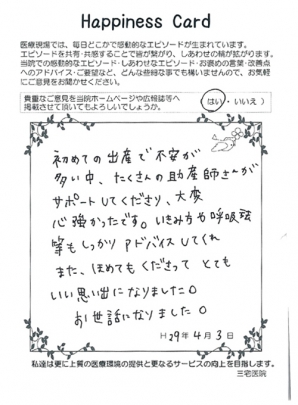 Happiness Card
医療現場では、毎日どこかで感動的なエピソードが生まれています。
エピソードを共有・共感することで皆が繋がり、しあわせの輪が拡がります。
当院での感動的なエピソード・しあわせなエピソード・お褒めの言葉・改善点
へのアドバイス・ご要望など、どんな些細な事でも構いませんので、お気軽
にご意見をお聞かせください。
貴重なご意見を当院ホームページや広報誌等へ
掲載させて頂いてもよろしいでしょうか。
(はい・いいえ)
初めての出産で不安が
多い中、たくさんの助産師さんが
サポートしてくださり、大変
心強かったです。いきみ方や呼吸法
等もしっかりアドバイスしてくれ
また、ほめてもくださって とても
いい思い出になりました。
お世話になりました。
H29年4月3日
私達は更に上質の医療環境の提供と更なるサービスの向上を目指します。
三宅医院